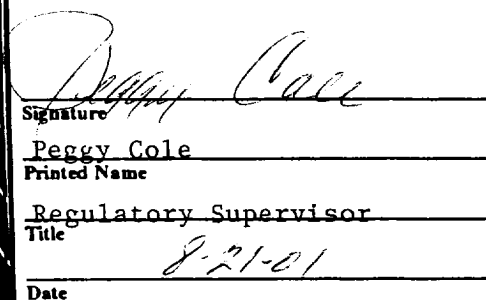 Peggy Cole
Signature
Peggy Cole
Printed Name
Regulatory Supervisor
Title
8-21-01
Date